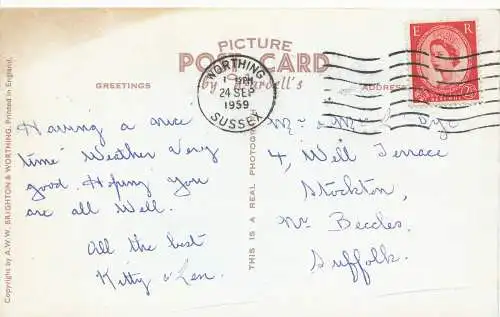 PICTURE
POST CARD
GREETINGS
ADDRESS
WORTHING
24 SEP
1959
SUSSEX
E R
Having a nice
time Weather Very
good. Hoping you
are all Well.
All the best
Kitty & Len.
4, Well Terrace
Stockton,
Nr. Beccles.
Suffolk.
THIS IS A REAL PHOTOGRAPH
Copyright by A.W.W. BRIGHTON & WORTHING. Printed in England.